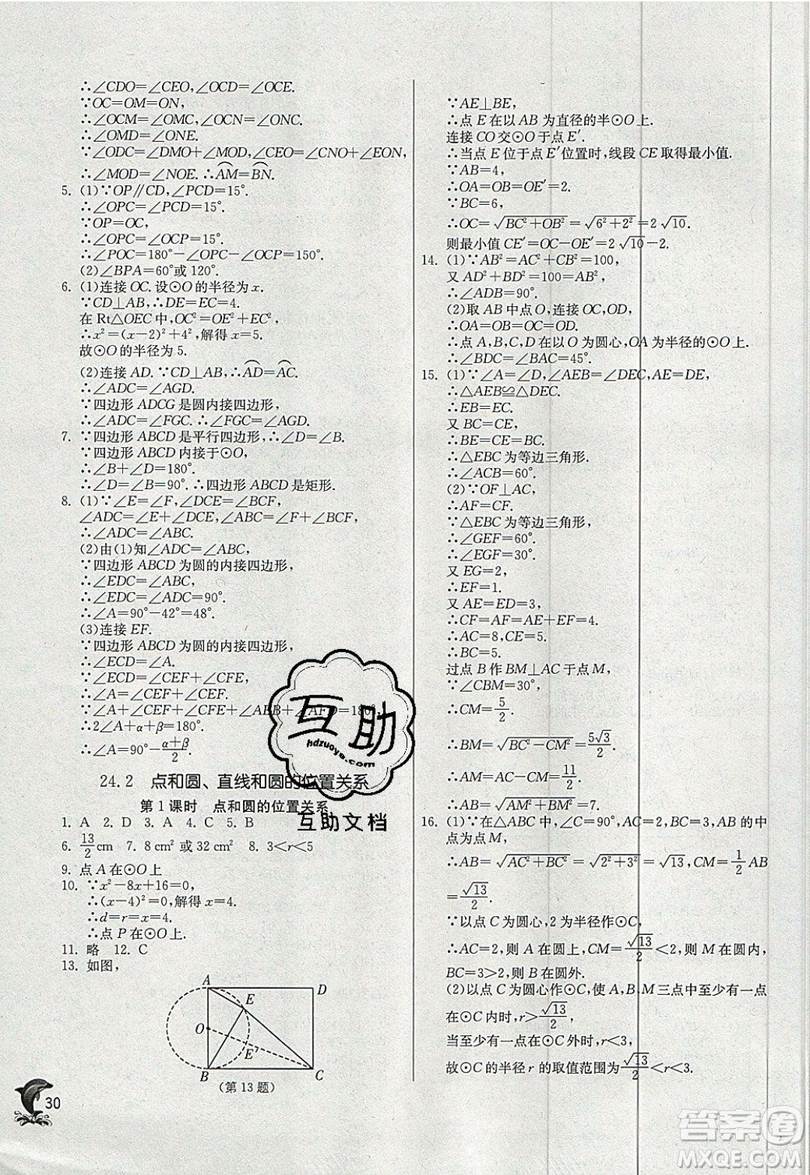 ∴∠CDO=∠CEO,∠OCD=∠OCE.
∵OC=OM=ON,
∴∠OCM=∠OMC,∠OCN=∠ONC.
∴∠OMD=∠ONE.
∵∠ODC=∠DMO+∠MOD,∠CEO=∠CNO+∠EON,
∴∠MOD=∠NOE. ∴AM⌒=BN⌒.
5. (1)∵OP∥CD,∠PCD=15°.
∴∠OPC=∠PCD=15°.
∵OP=OC,
∴∠OPC=∠OCP=15°.
∴∠POC=180°-∠OPC-∠OCP=150°.
(2)∠BPA=60°或120°.
6. (1)连接OC. 设⊙O的半径为x.
∵CD⊥AB,∴DE=EC=4.
在Rt△OEC中,OC²=OE²+EC²,
∴x²=(x-2)²+4²,解得x=5.
故⊙O的半径为5.
(2)连接AD. ∵CD⊥AB,∴AD⌒=AC⌒.
∴∠ADC=∠AGD.
∵四边形ADCG是圆内接四边形,
∴∠ADC=∠FGC. ∴∠FGC=∠AGD.
7. ∵四边形ABCD是平行四边形,∴∠D=∠B.
∵四边形ABCD内接于⊙O,
∴∠B+∠D=180°.
∴∠D=∠B=90°. ∴四边形ABCD是矩形.
8. (1)∵∠E=∠F,∠DCE=∠BCF,
∠ADC=∠E+∠DCE,∠ABC=∠F+∠BCF,
∴∠ADC=∠ABC.
(2)由(1)知∠ADC=∠ABC,
∵四边形ABCD为圆的内接四边形,
∴∠EDC=∠ABC.
∴∠EDC=∠ADC=90°.
∴∠A=90°-42°=48°.
(3)连接EF.
∵四边形ABCD为圆的内接四边形,
∴∠ECD=∠A.
∵∠ECD=∠CEF+∠CFE,
∴∠A=∠CEF+∠CFE.
∵∠A+∠CEF+∠CFE+∠AEB+∠AFD=180°,
∴2∠A+α+β=180°.
∴∠A=90°-(α+β)/2.
24.2 点和圆、直线和圆的位置关系
第1课时 点和圆的位置关系
1. A 2. D 3. A 4. C 5. B
6. 13/2 cm 7. 8 cm²或32 cm² 8. 3<r<5
9. 点A在⊙O上
10. ∵x²-8x+16=0,
∴(x-4)²=0,解得x=4.
∴d=r=4.
∴点P在⊙O上.
11. 略 12. C
13. 如图,
A D
E
O
E′
B C
(第13题)
30
∵AE⊥BE,
∴点E在以AB为直径的半⊙O上.
连接CO交⊙O于点E′.
∴当点E位于点E′位置时,线段CE取得最小值.
∵AB=4,
∴OA=OB=OE′=2.
∵BC=6,
∴OC=√(BC²+OB²)=√(6²+2²)=2√10.
则最小值CE′=OC-OE′=2√10-2.
14. (1)∵AB²=AC²+CB²=100,
又AD²+BD²=100,
∴∠ADB=90°.
(2)取AB中点O,连接OC,OD,
∴OA=OB=OC=OD.
∴点A,B,C,D在以O为圆心,OA为半径的圆上.
∴∠BDC=∠BAC=45°.
15. (1)∵∠A=∠D,∠AEB=∠DEC,AE=DE,
∴△AEB≌△DEC.
∴EB=EC.
又BC=CE,
∴BE=CE=BC.
∴△EBC为等边三角形.
∴∠ACB=60°.
(2)∵OF⊥AC,
∴AF=CF.
∵△EBC为等边三角形,
∴∠GEF=60°.
∴∠EGF=30°.
又EG=2,
∴EF=1.
又AE=ED=3,
∴CF=AF=AE+EF=4.
∴AC=8,EC=5.
∴BC=5.
过点B作BM⊥AC于点M,
∵∠CBM=30°,
∴CM=5/2.
∴BM=√(BC²-CM²)=5√3/2.
∴AB=√(AM²+BM²)=7.
16. (1)∵在△ABC中,∠C=90°,AB的中
点为点M,
∴AB=√(AC²+BC²)=√(2²+3²)=√13,CM=1/2 AB=
√13/2.
∵以点C为圆心,2为半径作⊙C,
∴AC=2,则A在圆上,CM=√13/2<2,则M在圆内,
BC=3>2,则B在圆外.
(2)以点C为圆心作⊙C,使A,B,M三点中至少有一点
在⊙C内时,r>√13/2,
当至少有一点在⊙C外时,r<3,
故⊙C的半径r的取值范围为√13/2<r<3.
互助
hdzuoye.com
互助文档
答案圈
MXQE.COM